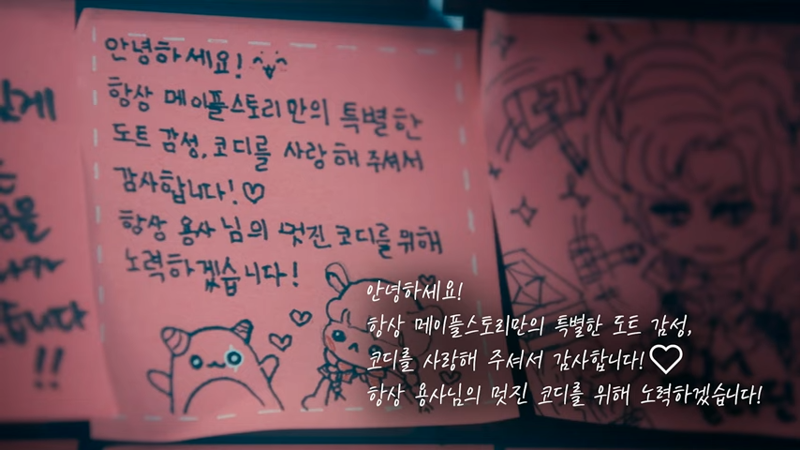 안녕하세요! ^^
항상 메이플스토리만의 특별한
도트 감성, 코디를 사랑해 주셔서
감사합니다!♡
항상 용사님의 멋진 코디를 위해
노력하겠습니다!
!!
안녕하세요!
항상 메이플스토리만의 특별한 도트 감성,
코디를 사랑해 주셔서 감사합니다!♡
항상 용사님의 멋진 코디를 위해 노력하겠습니다!